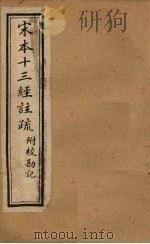 宋本十三經註疏
附校勘記
mtoou.info